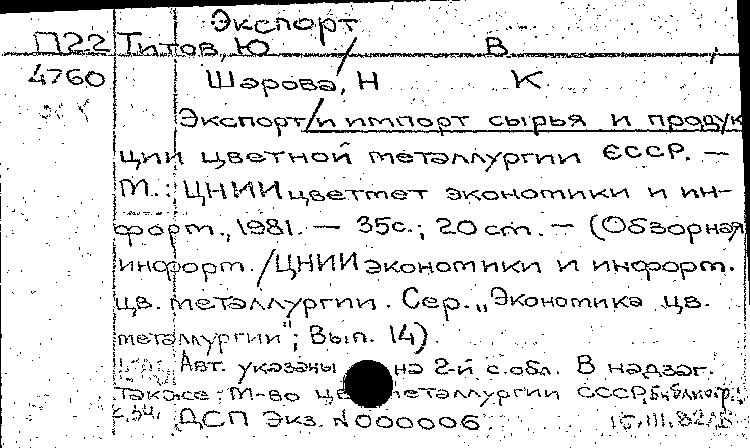 Экспорт
П22 Титов, Ю В
4760 Шарова, Н К
Экспорт/и импорт сырья и продук
ции цветной металлургии СССР. –
М.: ЦНИИцветмет экономики и ин-
форм., 1981. – 35с.; 20 см. – (Обзорная
информ. /ЦНИИ экономики и информ.
цв. металлургии. Сер. „Экономика цв.
металлургии"; Вып. 14).
Авт. указаны на 2-й с. обл. В надзаг.
также: М-во цв металлургии СССР, Библиогр.:
с. 34. ДСП Экз. N000006